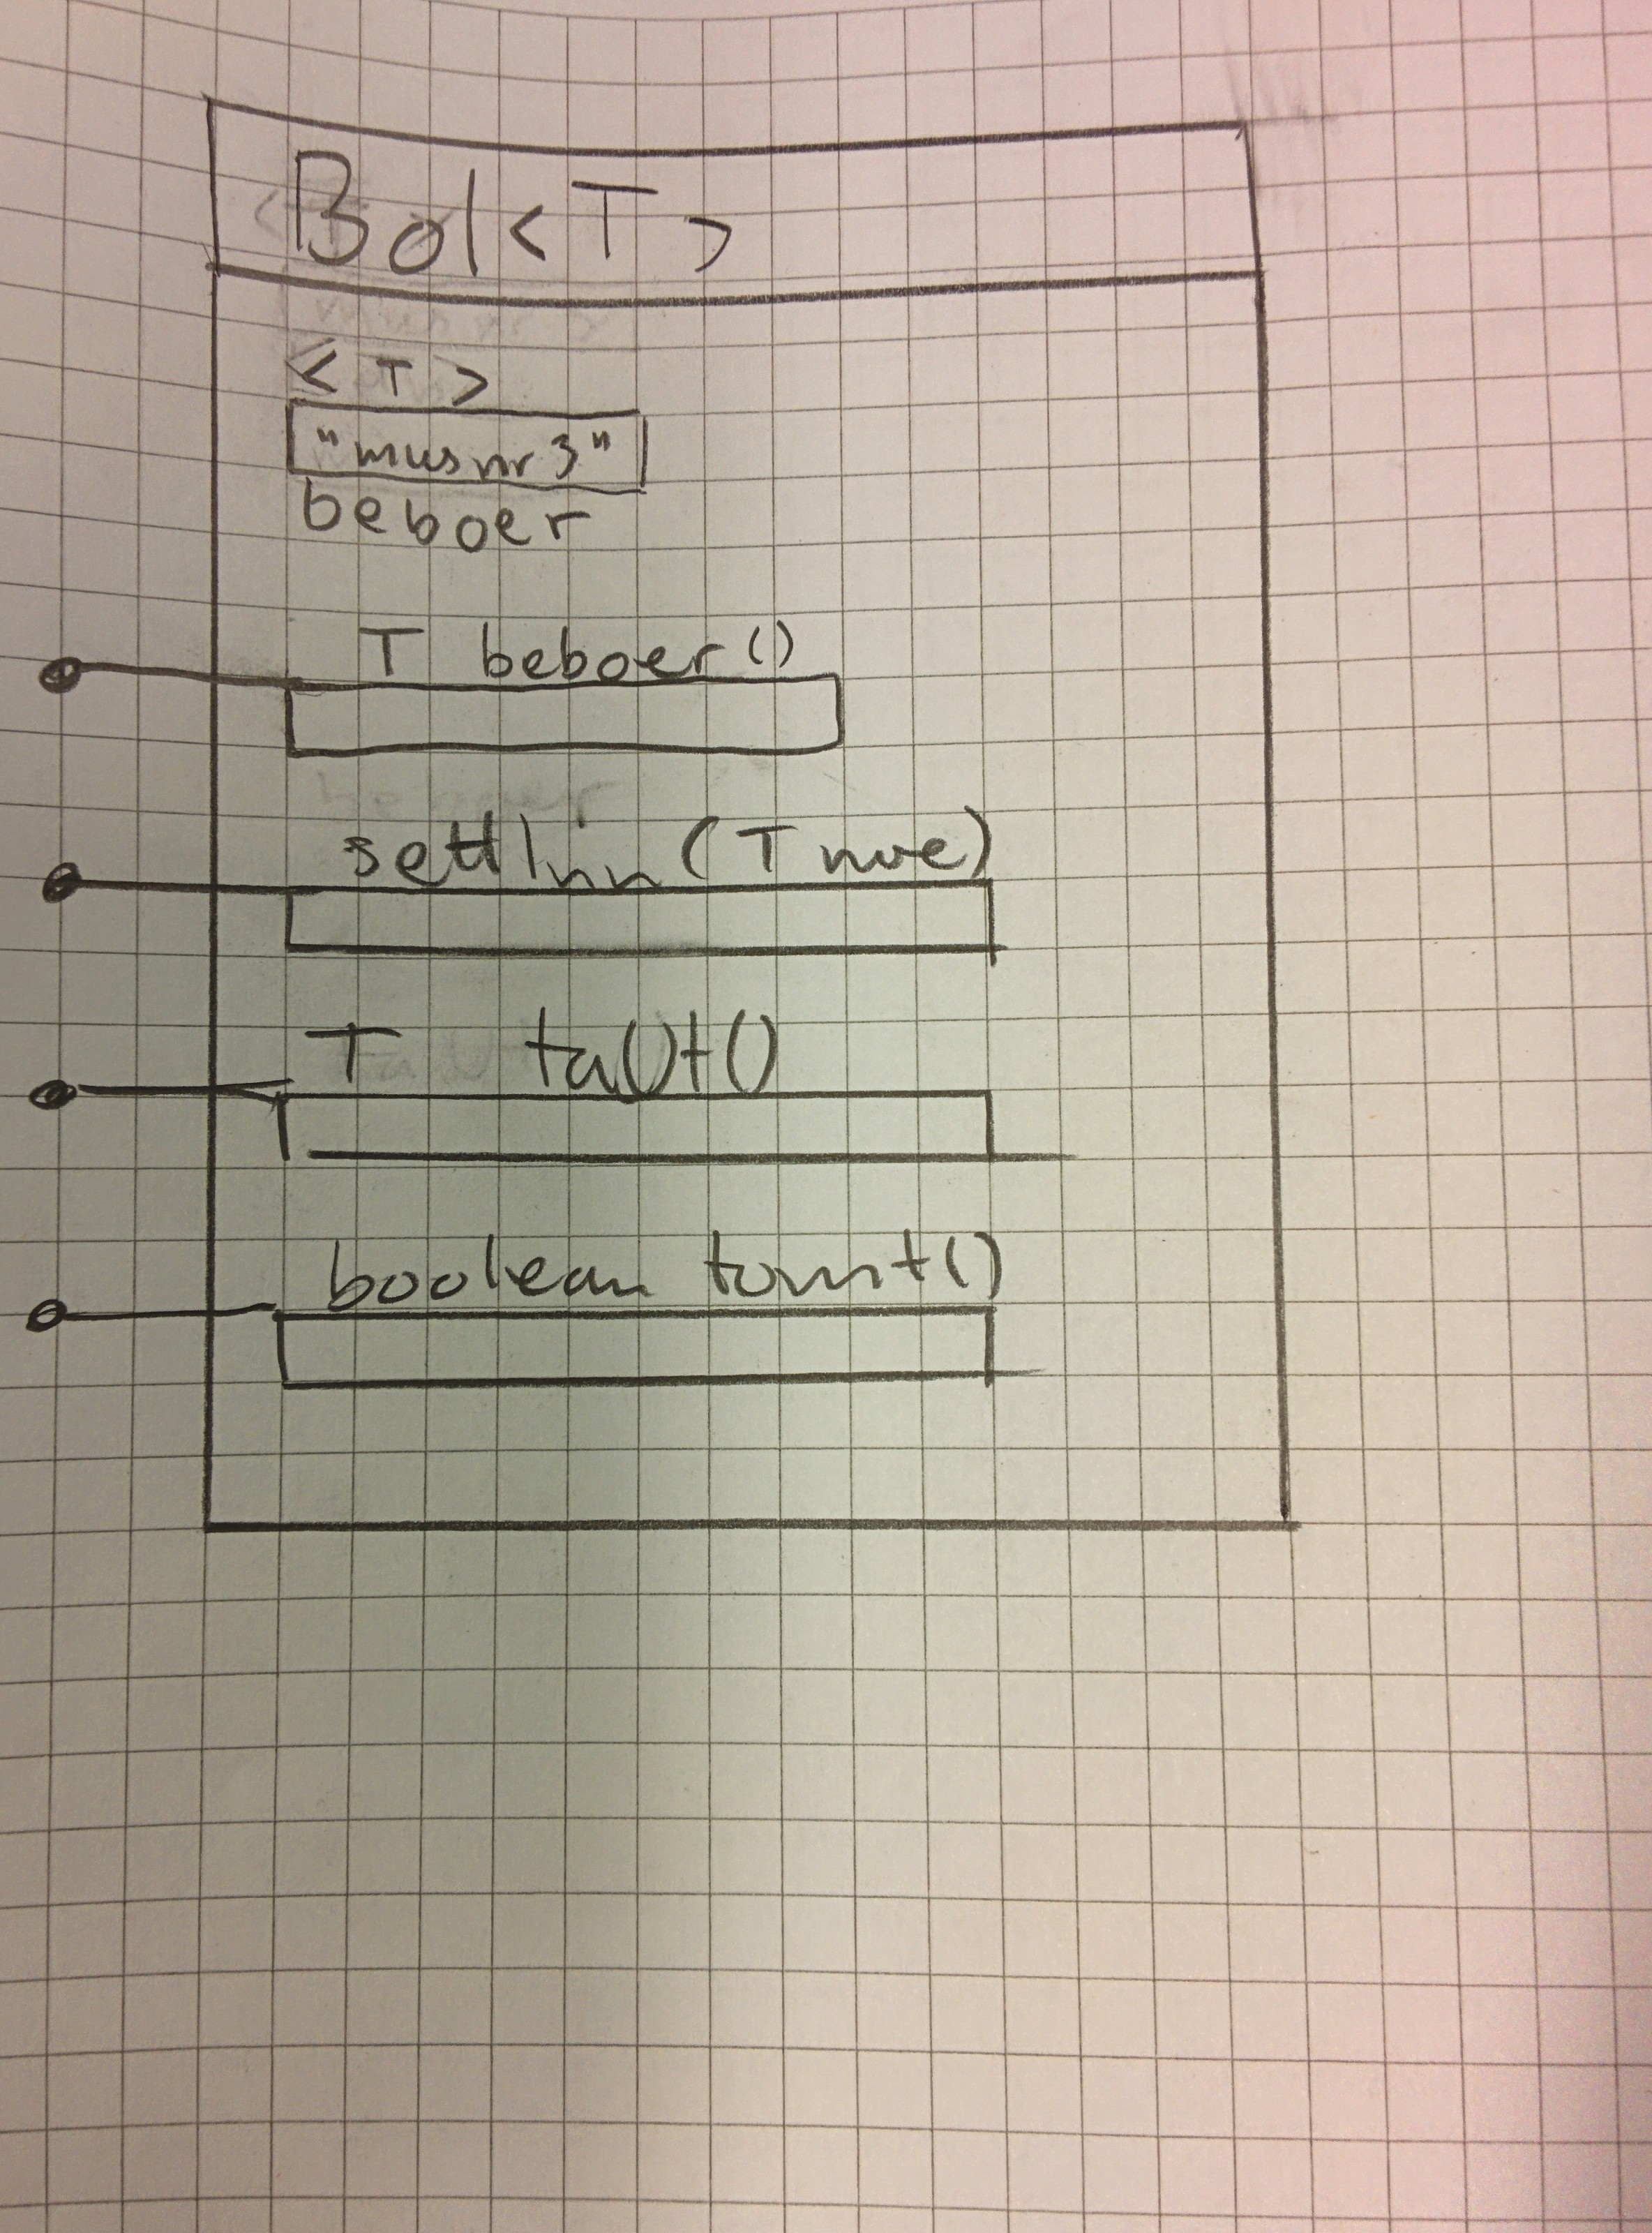 Bol<T>
<T>
"mus nr 3"
beboer
T beboer()
settInn(T noe)
T taUt()
boolean tomt()